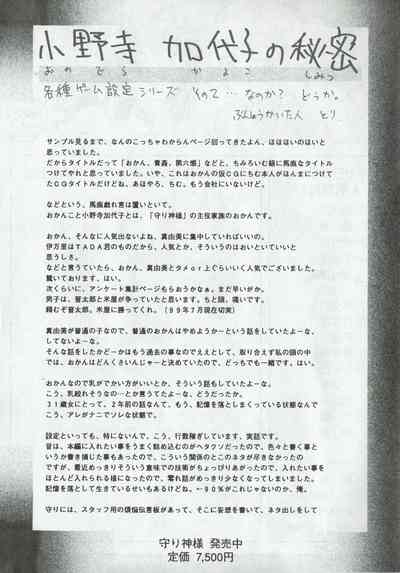 小野寺 加代子の秘密
おのでら かよこ しみつ
各種ゲーム設定シリーズ その1… なのか? どうか。
ぶんしょうかいた人 とり
サンプル見るまで、なんのこっちゃわからんページ回ってきたよん、ほほほいのほいと
思っていました。
だからタイトルだって「おかん、青姦、第六感」などと、ちみろいむ級に馬鹿なタイトル
つけてやれと思っていました。いや、これはおかんの仮CGにちむ本人がほんまにつけて
たCGタイトルだけどね、あほやろ、ちむ。もう会社にいないけど。
などという、馬鹿戯れ言は置いといて。
おかんこと小野寺加代子とは、「守り神様」の主役家族のおかんです。
おかん、そんなに人気出ないよね、真由美に集中していればいいの。
伊万里はTADA君のものだから、人気とか、そういうのはおいといていいと
思うしさ。
などと言うていたら、おかん、真由美とタメor上ぐらいいく人気でございました。
驚いております、はい。
次くらいに、アンケート集計ページもらおうかなぁ。まだ早いがか。
男子は、晋太郎と米屋が争っていたと思います。ちと頭、痛いです。
頼むぞ晋太郎。米屋に勝ってくれ。(99年7月現在切実)
真由美が普通の子なので、普通のおかんはやめようかーという話をしていたよーな、
してないよーな。
そんな話をしたかどーかはもう過去の事なのでええとして、取り合えず私の頭の中
では、おかんはどんくさいんじゃーと決めていたので、どっちでも一緒です。はい。
おかんなので乳がでかい方がいいとか、そういう話もしていたよーな。
こう、乳絞れそうなの…とか言うてたよーな、どうだったか。
31歳女にとって、2年前の話なんて、もう、記憶を落としまくっている状態なんで
こう、アレがナニでソレな状態で。
設定といっても、特にないんで、こう、行数稼ぎしています、実話です。
昔は、本編に入れたい事をうまく放め込むのがヘタクソだったので、色々と書く事と
いうか書き損じた事もあったので、こういう関係のとこのネタが尽きなかったの
ですが、最近めっきりそういう意味での技術がちょっぴりあがったので、入れたい事を
ほとんど入れられる様になったので、零れ話がめっきり少なくなってしまいました。
記憶を落として生きているせいもあるけどね。←90%がこれじゃないのか、俺。
守りには、スタッフ用の煩悩伝言板があって、そこに妄想を書いて、ネタ出しをして
守り神様 発売中
定価 7,500円